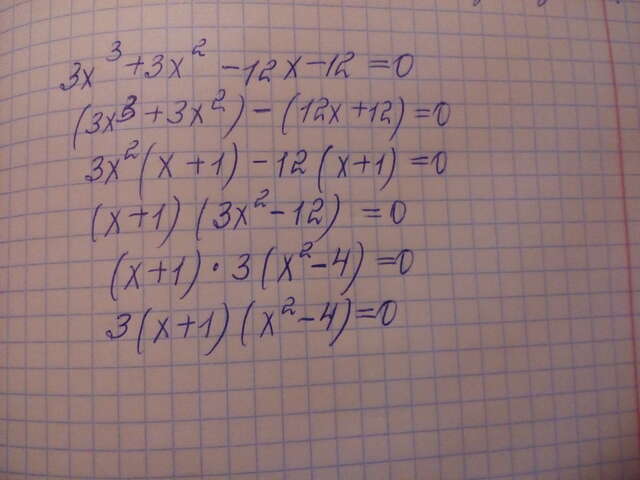 3x³+3x²-12x-12=0
(3x³+3x²)-(12x+12)=0
3x²(x+1)-12(x+1)=0
(x+1)(3x²-12)=0
(x+1)·3(x²-4)=0
3(x+1)(x²-4)=0